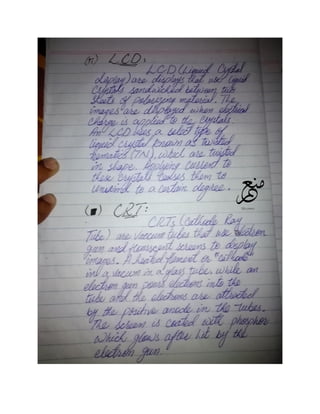 (n) LCD:
LCD (Liquid Crystal
display) are displays that use liquid
crystals sandwiched between two
sheets of polarizing material. The
images are displayed when electrical
charge is applied to the crystals.
An LCD uses a select type of
liquid crystal known as twisted
nematics (TN), which are twisted
in shape. Applying current to
these crystals causes them to
unwind to a certain degree.
CRT:
CRTs (Cathode Ray
Tube) are vaccum tubes that use electron
gun and flourescent screens to display
images. A heated filament or "cathode"
in a vacum in a glass tube while an
electron gun pours electrons into the
tube and the electrons are attracted
by the positive anode in the tubes.
The screen is coated with phosphor
which glows after hit by the
electron gun.